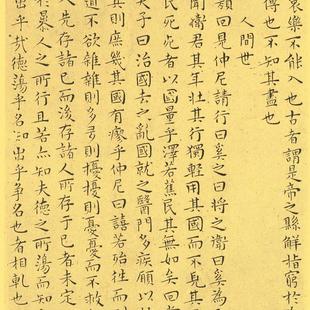 哀樂不能入也古者謂是帝之縣解指窮於
傳也不知其盡也
人間世
顏回見仲尼請行曰奚之曰將之衛曰奚為
聞衛君其年壯其行獨輕用其國而不見其
民死死者以國量乎澤若蕉民其無如矣回
夫子曰治國去之亂國就之醫門多疾願以
其則庶幾其國有瘳乎仲尼曰譆若殆往而
道不欲雜雜則多多則擾擾則憂憂而不救
人先存諸己而後存諸人所存于己者未定
於暴人之所行且若亦知夫德之所蕩而知
出乎哉德蕩乎名知出乎爭名也者相軋也